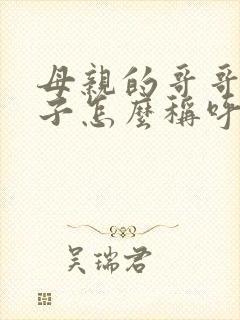 母親的哥哥
子怎麼稱呼
吳瑞君